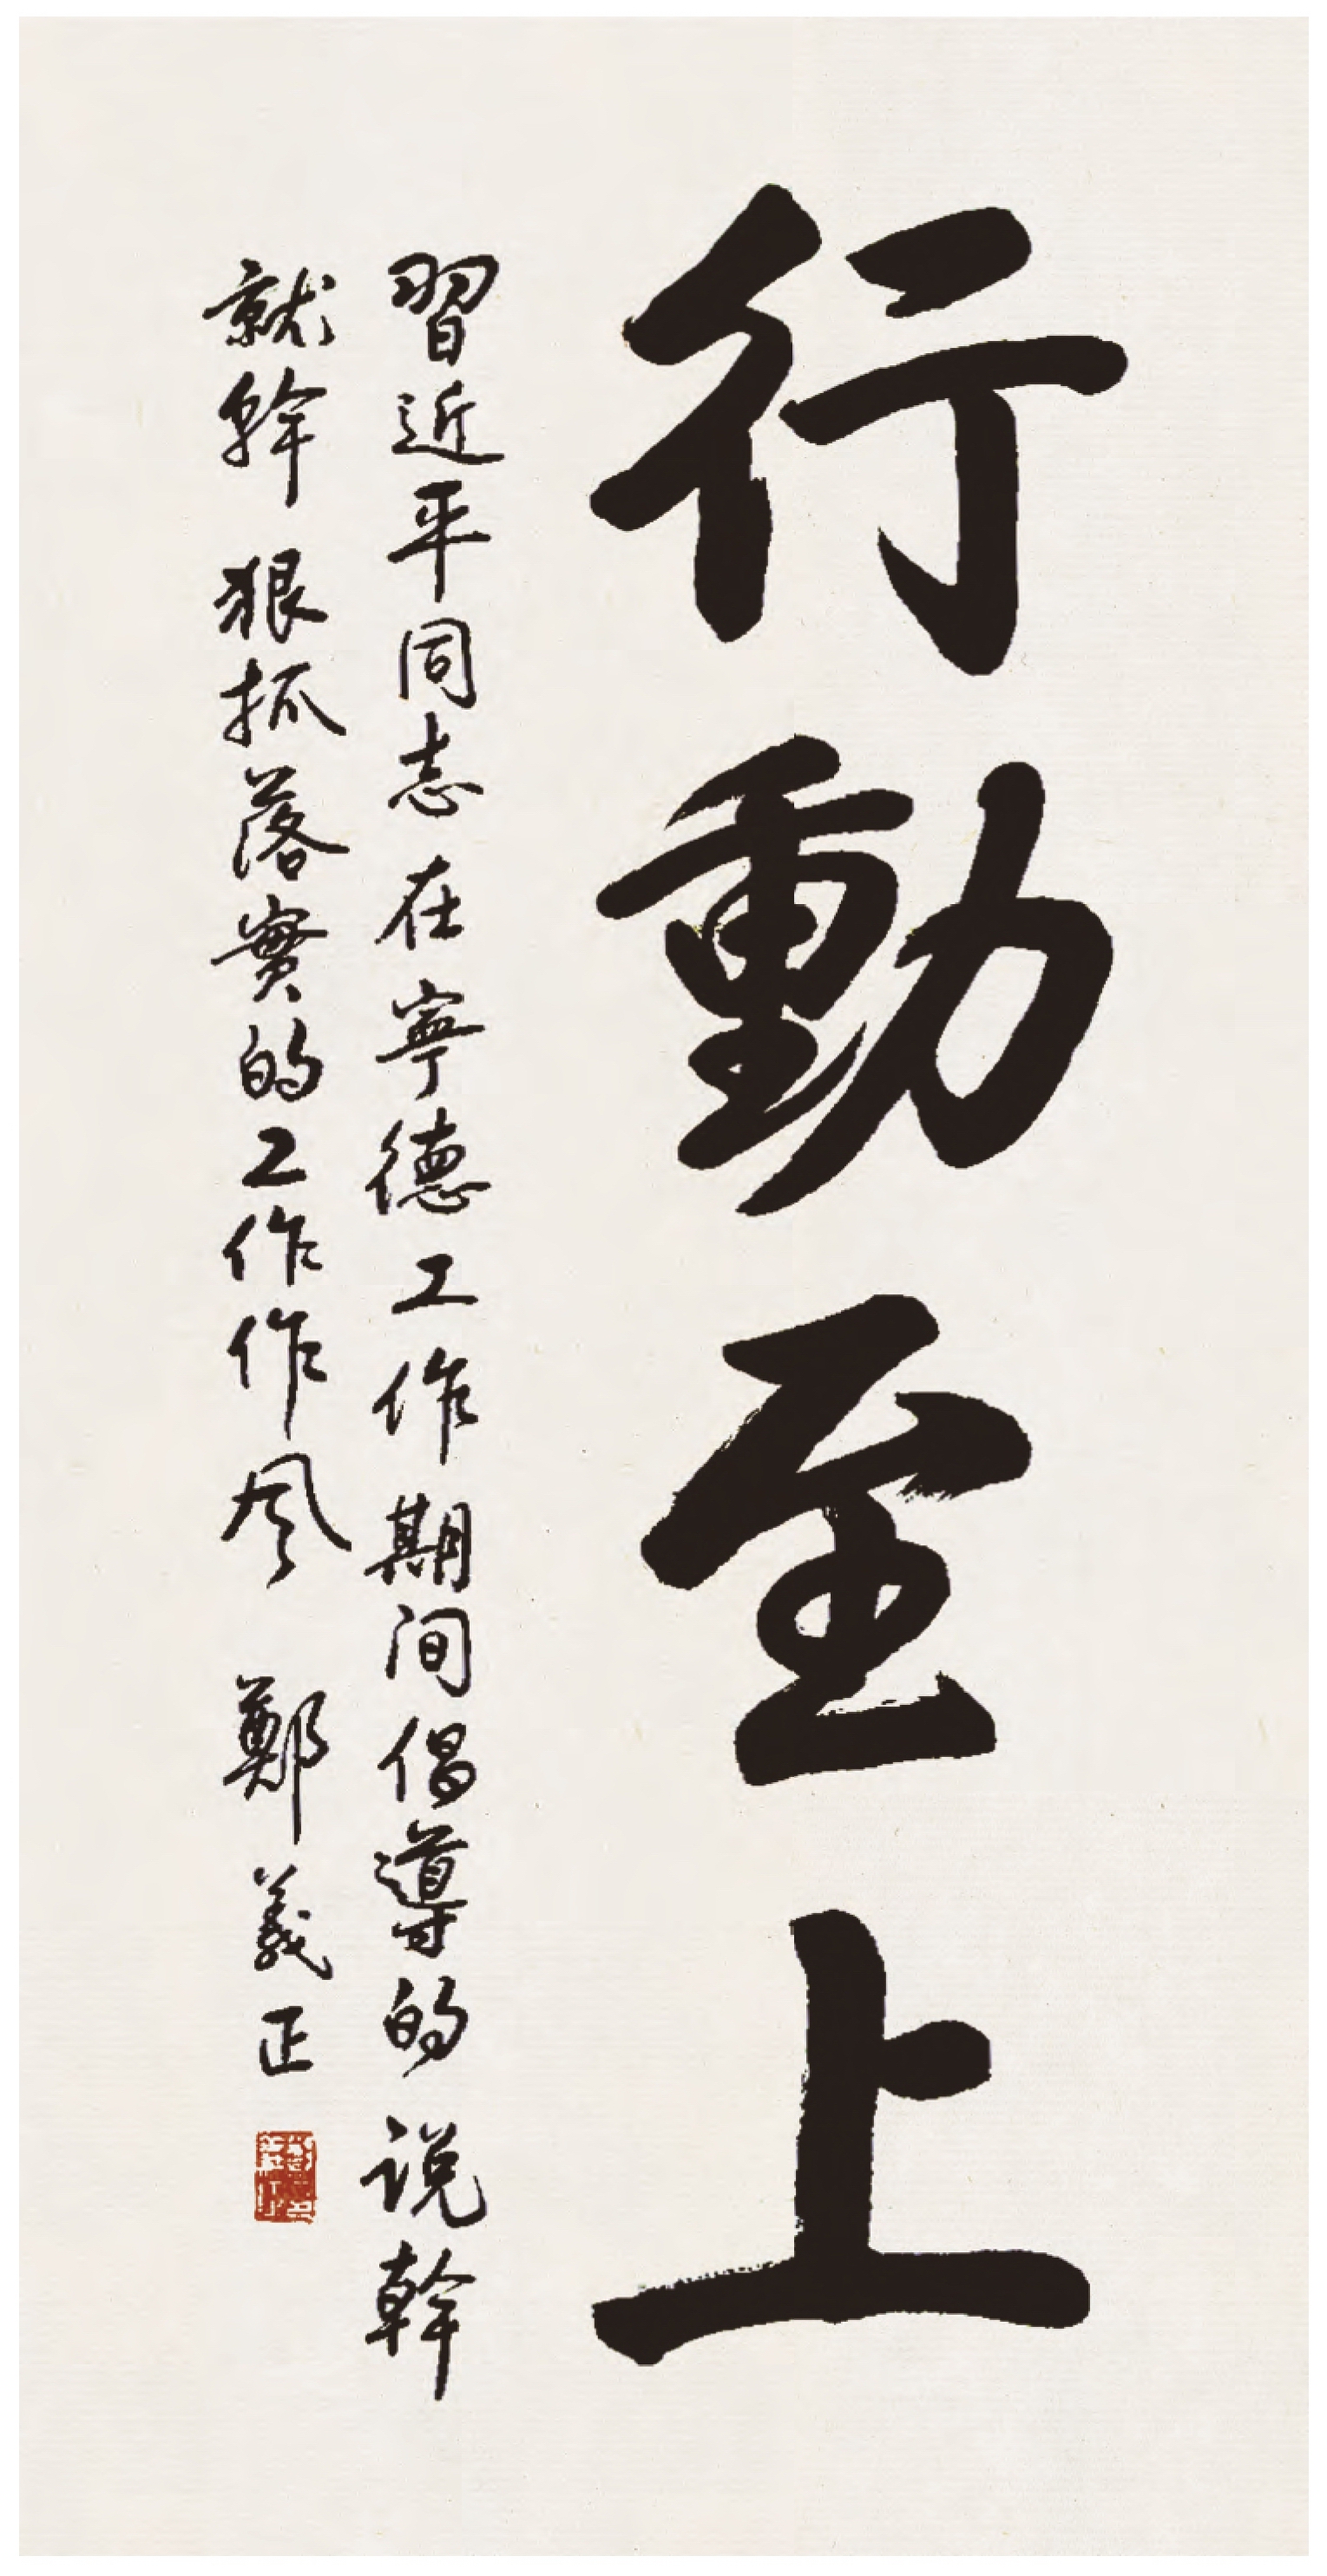 行動至上
習近平同志在寧德工作期间倡導的说幹
就幹狠抓落實的工作作风 鄭義正